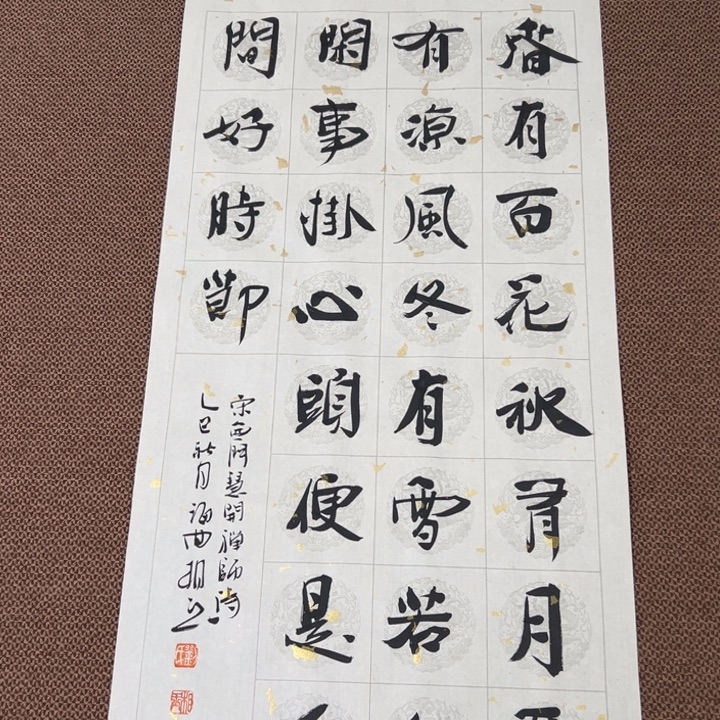 春有百花秋有月
有涼風冬有雪若
閑事掛心頭便是
間好時節
宋無門慧開禪師詩
乙巳秋月